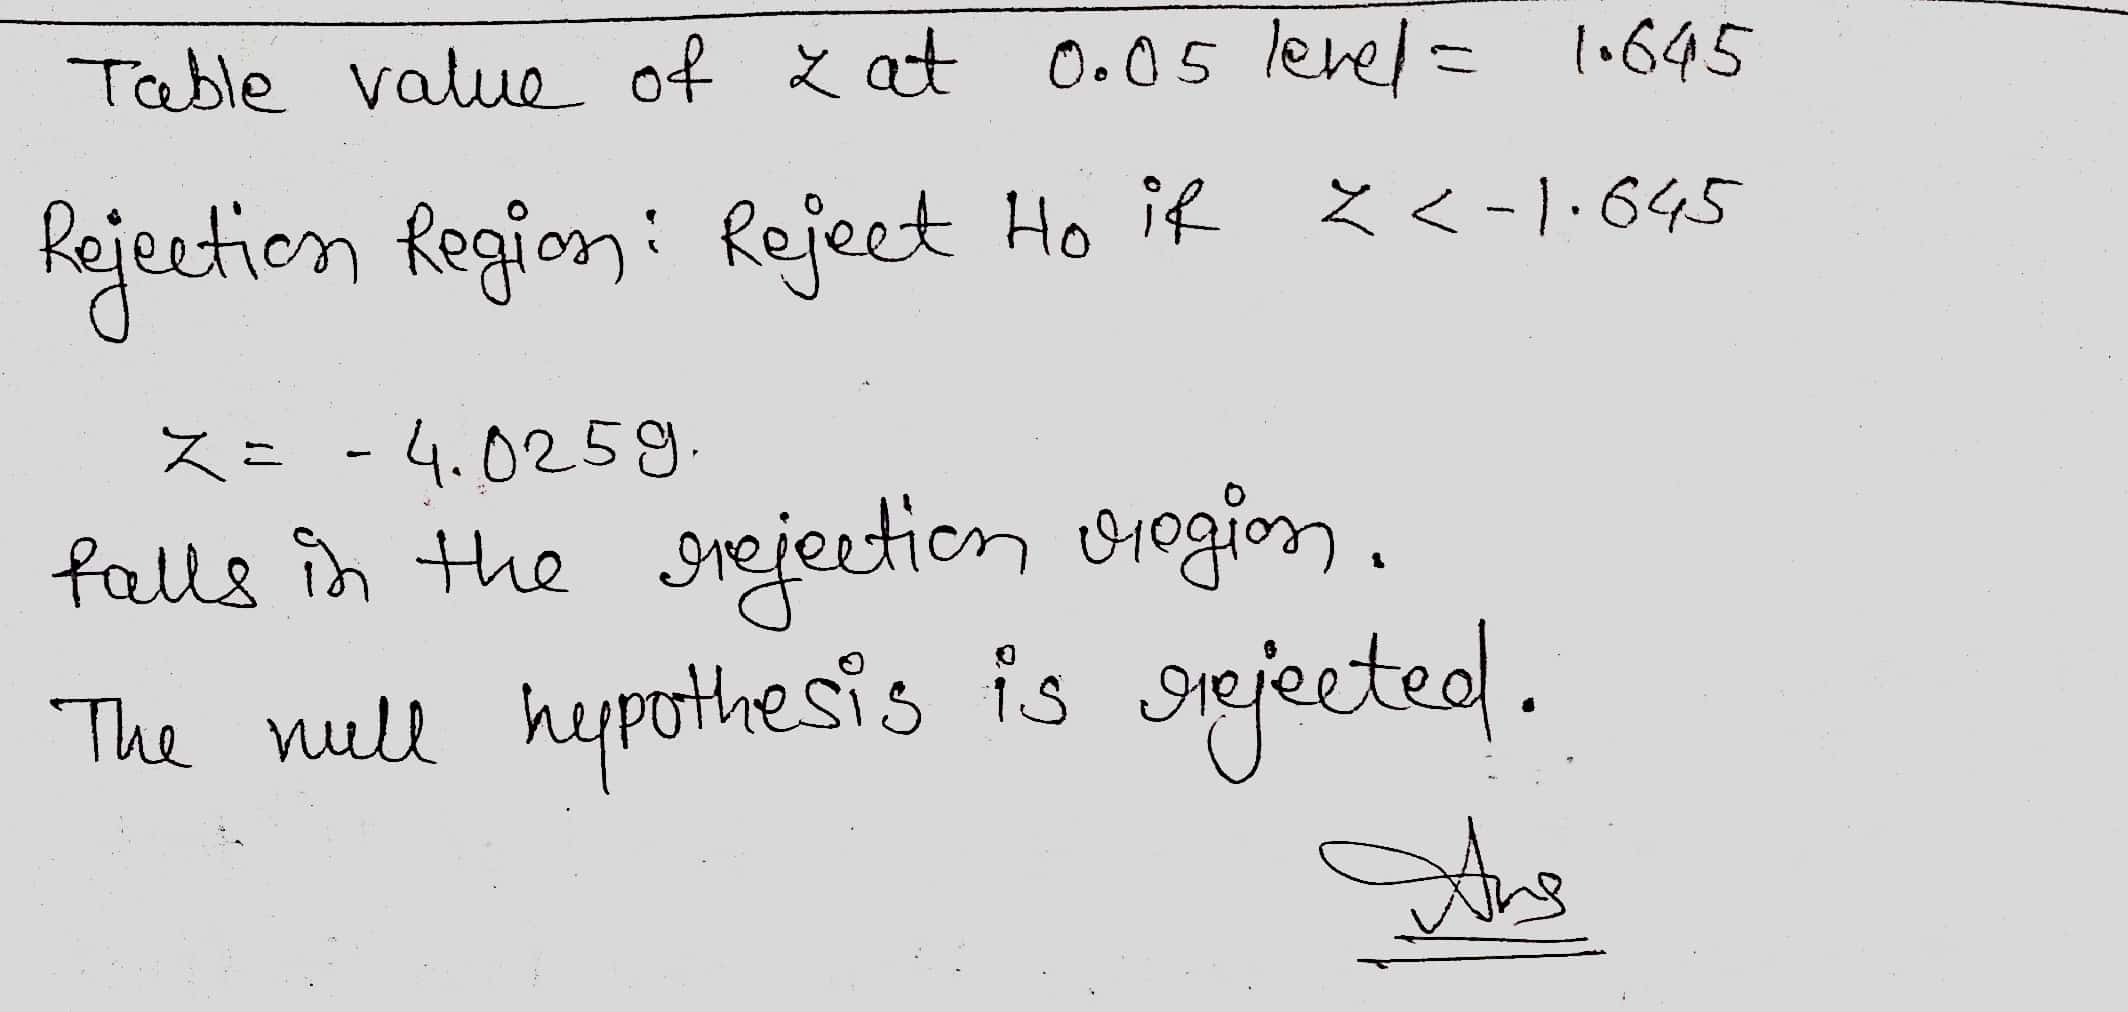 Table value of z at 0.05 level = 1.645
Rejection Region: Reject Ho if z < -1.645
z = -4.0259.
falls in the rejection region.
The null hypothesis is rejected.
Ans